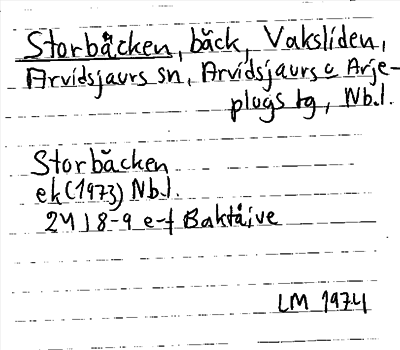 Storbäcken, bäck, Vaksliden,
Arvidsjaurs sn, Arvidsjaurs o Arje-
plogs tg, Nb.l.
Storbäcken
ek (1973) Nb.l.
24 J 8-9 e-f Baktåive
LM 1974